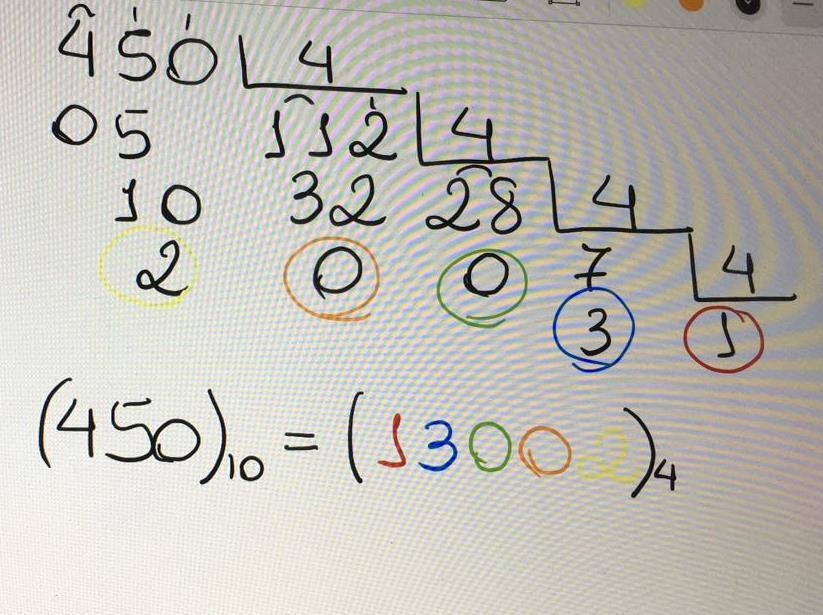 450 4
05 112 4
10 32 28 4
2 0 0 7 4
3 1
(450)10 = (13002)4